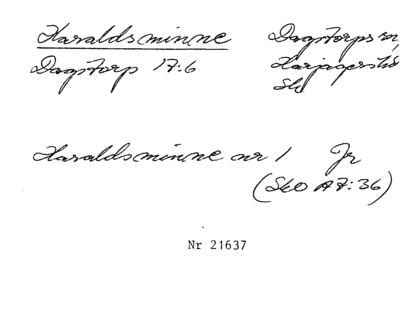 Haraldsminne Dagstorps sn
Dagstorp 17:6 Harjagers hd
Sk
Haraldsminne nr 1 Jr
(Sko A7:36)
Nr 21637